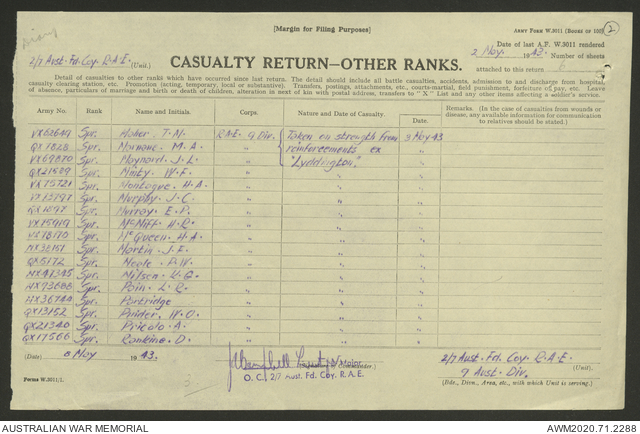 [Margin for Filing Purposes]
ARMY FORM W.3011 (BOOKS OF 100) 2
Diary
Date of last A.F. W.3011 rendered
2/7 Aust. Fd. Coy. R.A.E. (Unit.)
CASUALTY RETURN—OTHER RANKS.
2 Nov. 1943. Number of sheets
attached to this return
Detail of casualties to other ranks which have occurred since last return. The detail should include all battle casualties, accidents, admission to and discharge from hospital,
casualty clearing station, etc. Promotion (acting, temporary, local or substantive). Transfers, postings, attachments, etc., courts-martial, field punishment, forfeiture of pay, etc. Leave
of absence, particulars of marriage and birth or death of children, alteration in next of kin with postal address, transfers to "X" List and any other items affecting a soldier's service.
Army No. Rank Name and Initials. Corps. Nature and Date of Casualty. Remarks. (In the case of casualties from wounds or disease, any available information for communication to relatives should be stated.)
Date.
VX62649 Spr. Maher T. M. R.A.E. 9 Div. Taken on strength from 3 Nov 43
QX7828 Spr. M. A. reinforcements ex
VX69870 Spr. Maynard J. L. "Lyddington"
QX21509 Spr. Minty W. F. " "
VX75721 Spr. Montague H. A. " "
Spr. Murphy J. C. " "
Spr. Murray E. P. " "
Spr. H. R. " "
Spr. McQueen H. A. " "
Spr. Martin J. E. " "
QX5172 Spr. " "
NX47345 Spr. " "
NX93688 Spr. Pain L. R. " "
WX36740 Spr. Partridge " "
QX13152 Spr. W. O. " "
QX21340 Spr. A. " "
QX17566 Spr. Rankine D. " "
(Date) 8 Nov 1943.
Major
(Commander.)
O.C. 2/7 Aust. Fd. Coy. R.A.E.
2/7 Aust. Fd. Coy. R.A.E. (Unit.)
9 Aust. Div.
(Bde., Divn., Area, etc., with which Unit is serving.)
Forms W.3011/1.
AUSTRALIAN WAR MEMORIAL
AWM2020.71.2288